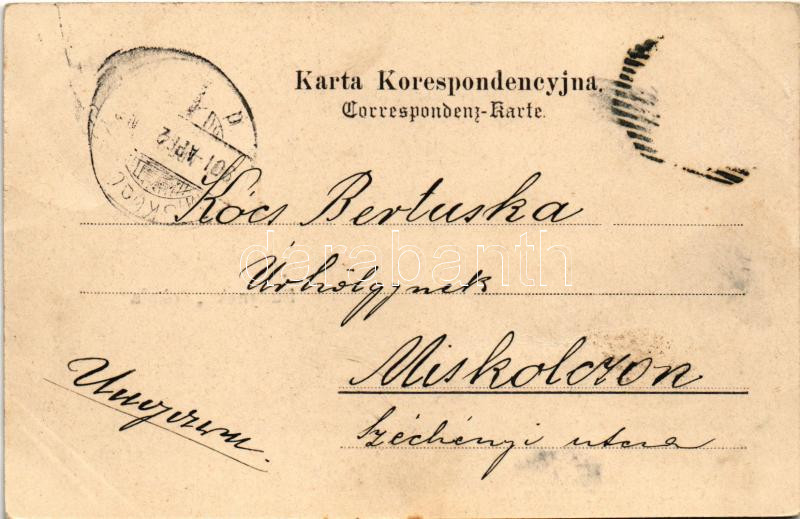 Karta Korespondencyjna.
Correspondenz-Karte.
MISKOLCZ
901 APR 2
Kócs Bertuska
Úrhölgynek
Miskolczon
Ungarn
Széchényi utcza
darabanth